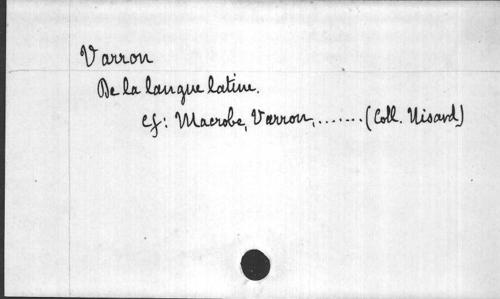 Varron
De la langue latine.
cf: Macrobe, Varron, ....... (Coll. Nisard)